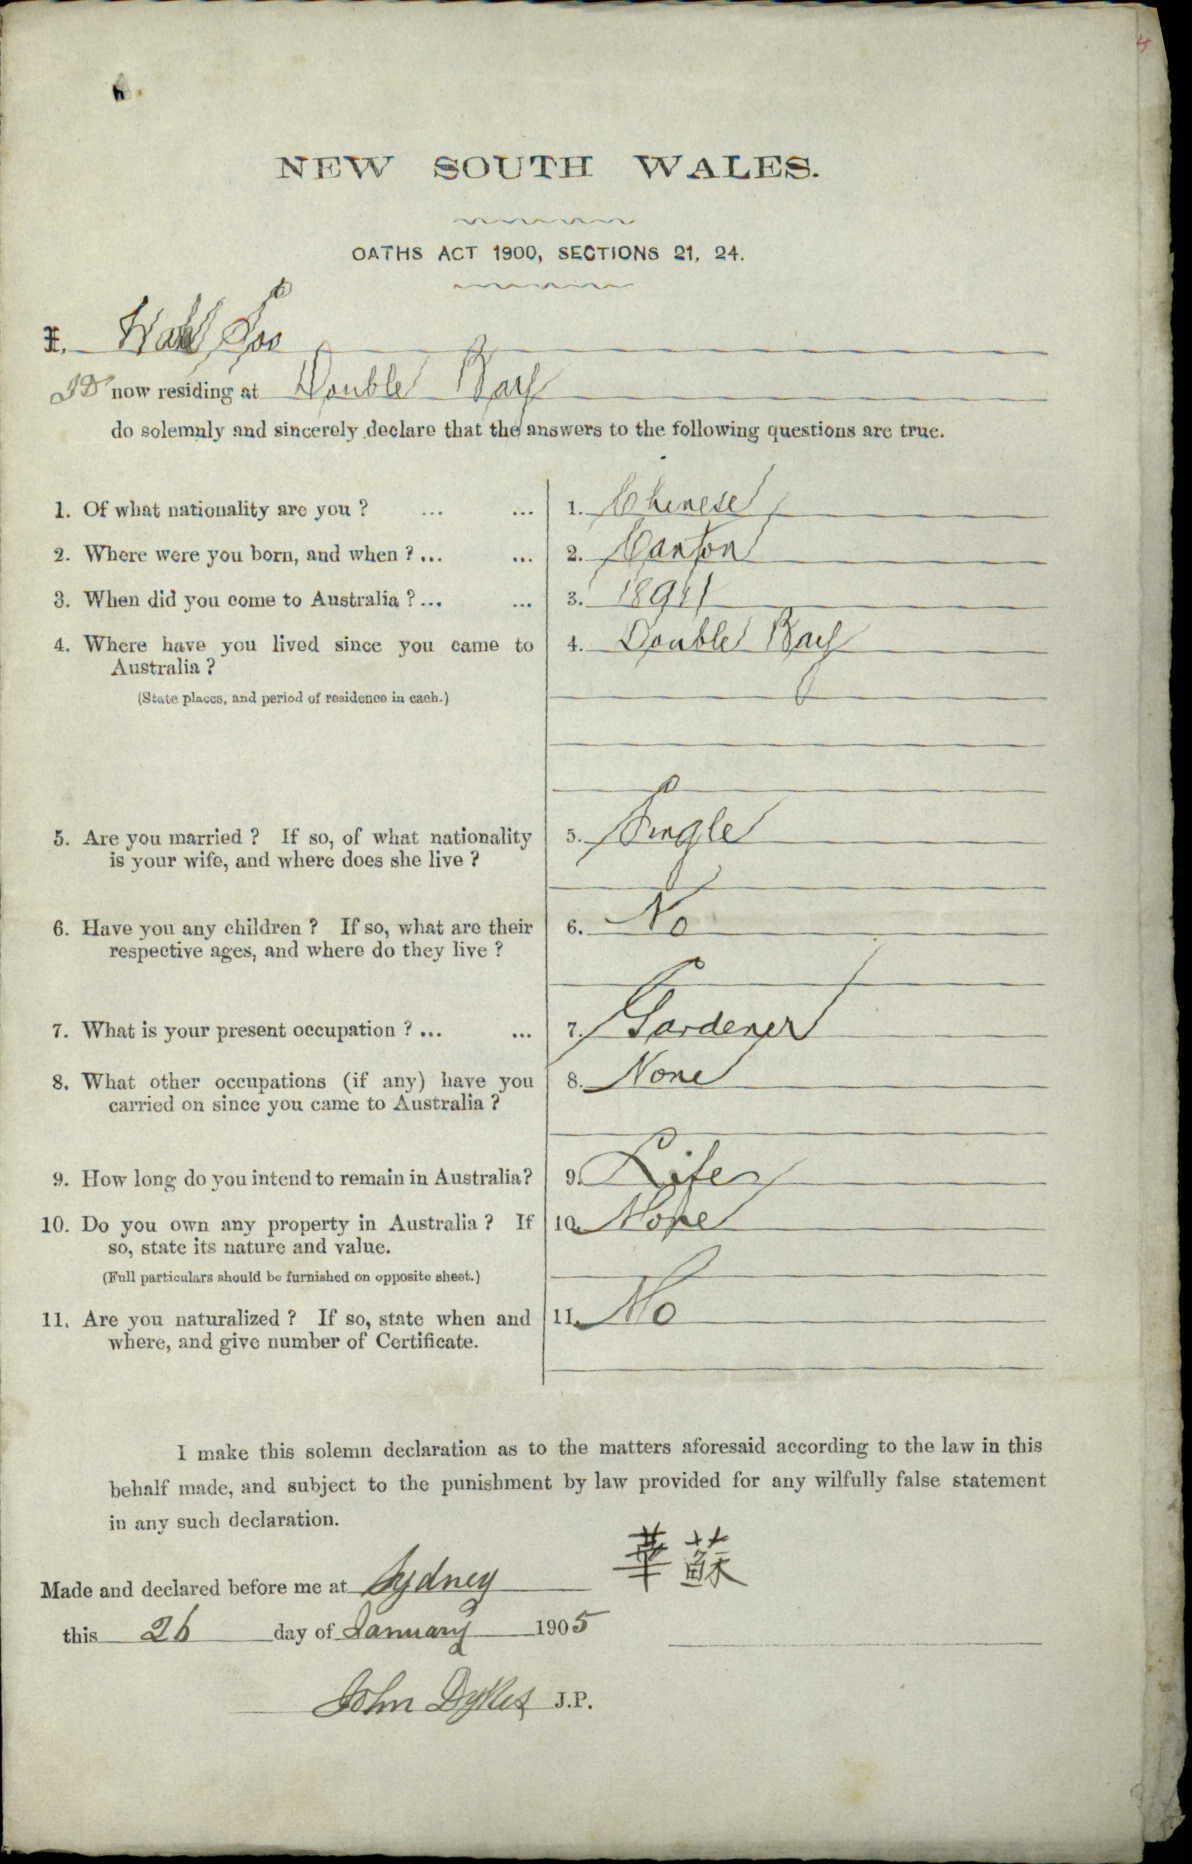 NEW SOUTH WALES.
OATHS ACT 1900, SECTIONS 21, 24.
I, Wah Soo
JD now residing at Double Bay
do solemnly and sincerely declare that the answers to the following questions are true.
1. Of what nationality are you ? ... ... 1. Chinese
2. Where were you born, and when ? ... ... 2. Canton
3. When did you come to Australia ? ... ... 3.
4. Where have you lived since you came to 4. Double Bay
Australia ?
(State places, and period of residence in each.)
5. Are you married ? If so, of what nationality 5. Single
is your wife, and where does she live ?
6. Have you any children ? If so, what are their 6. No
respective ages, and where do they live ?
7. What is your present occupation ? ... ... 7. Gardener
8. What other occupations (if any) have you 8. None
carried on since you came to Australia ?
9. How long do you intend to remain in Australia? 9. Life
10. Do you own any property in Australia ? If 10. None
so, state its nature and value.
(Full particulars should be furnished on opposite sheet.)
11. Are you naturalized ? If so, state when and 11. No
where, and give number of Certificate.
I make this solemn declaration as to the matters aforesaid according to the law in this
behalf made, and subject to the punishment by law provided for any wilfully false statement
in any such declaration.
華蘇
Made and declared before me at Sydney
this 26 day of January 1905
John Dykes J.P.